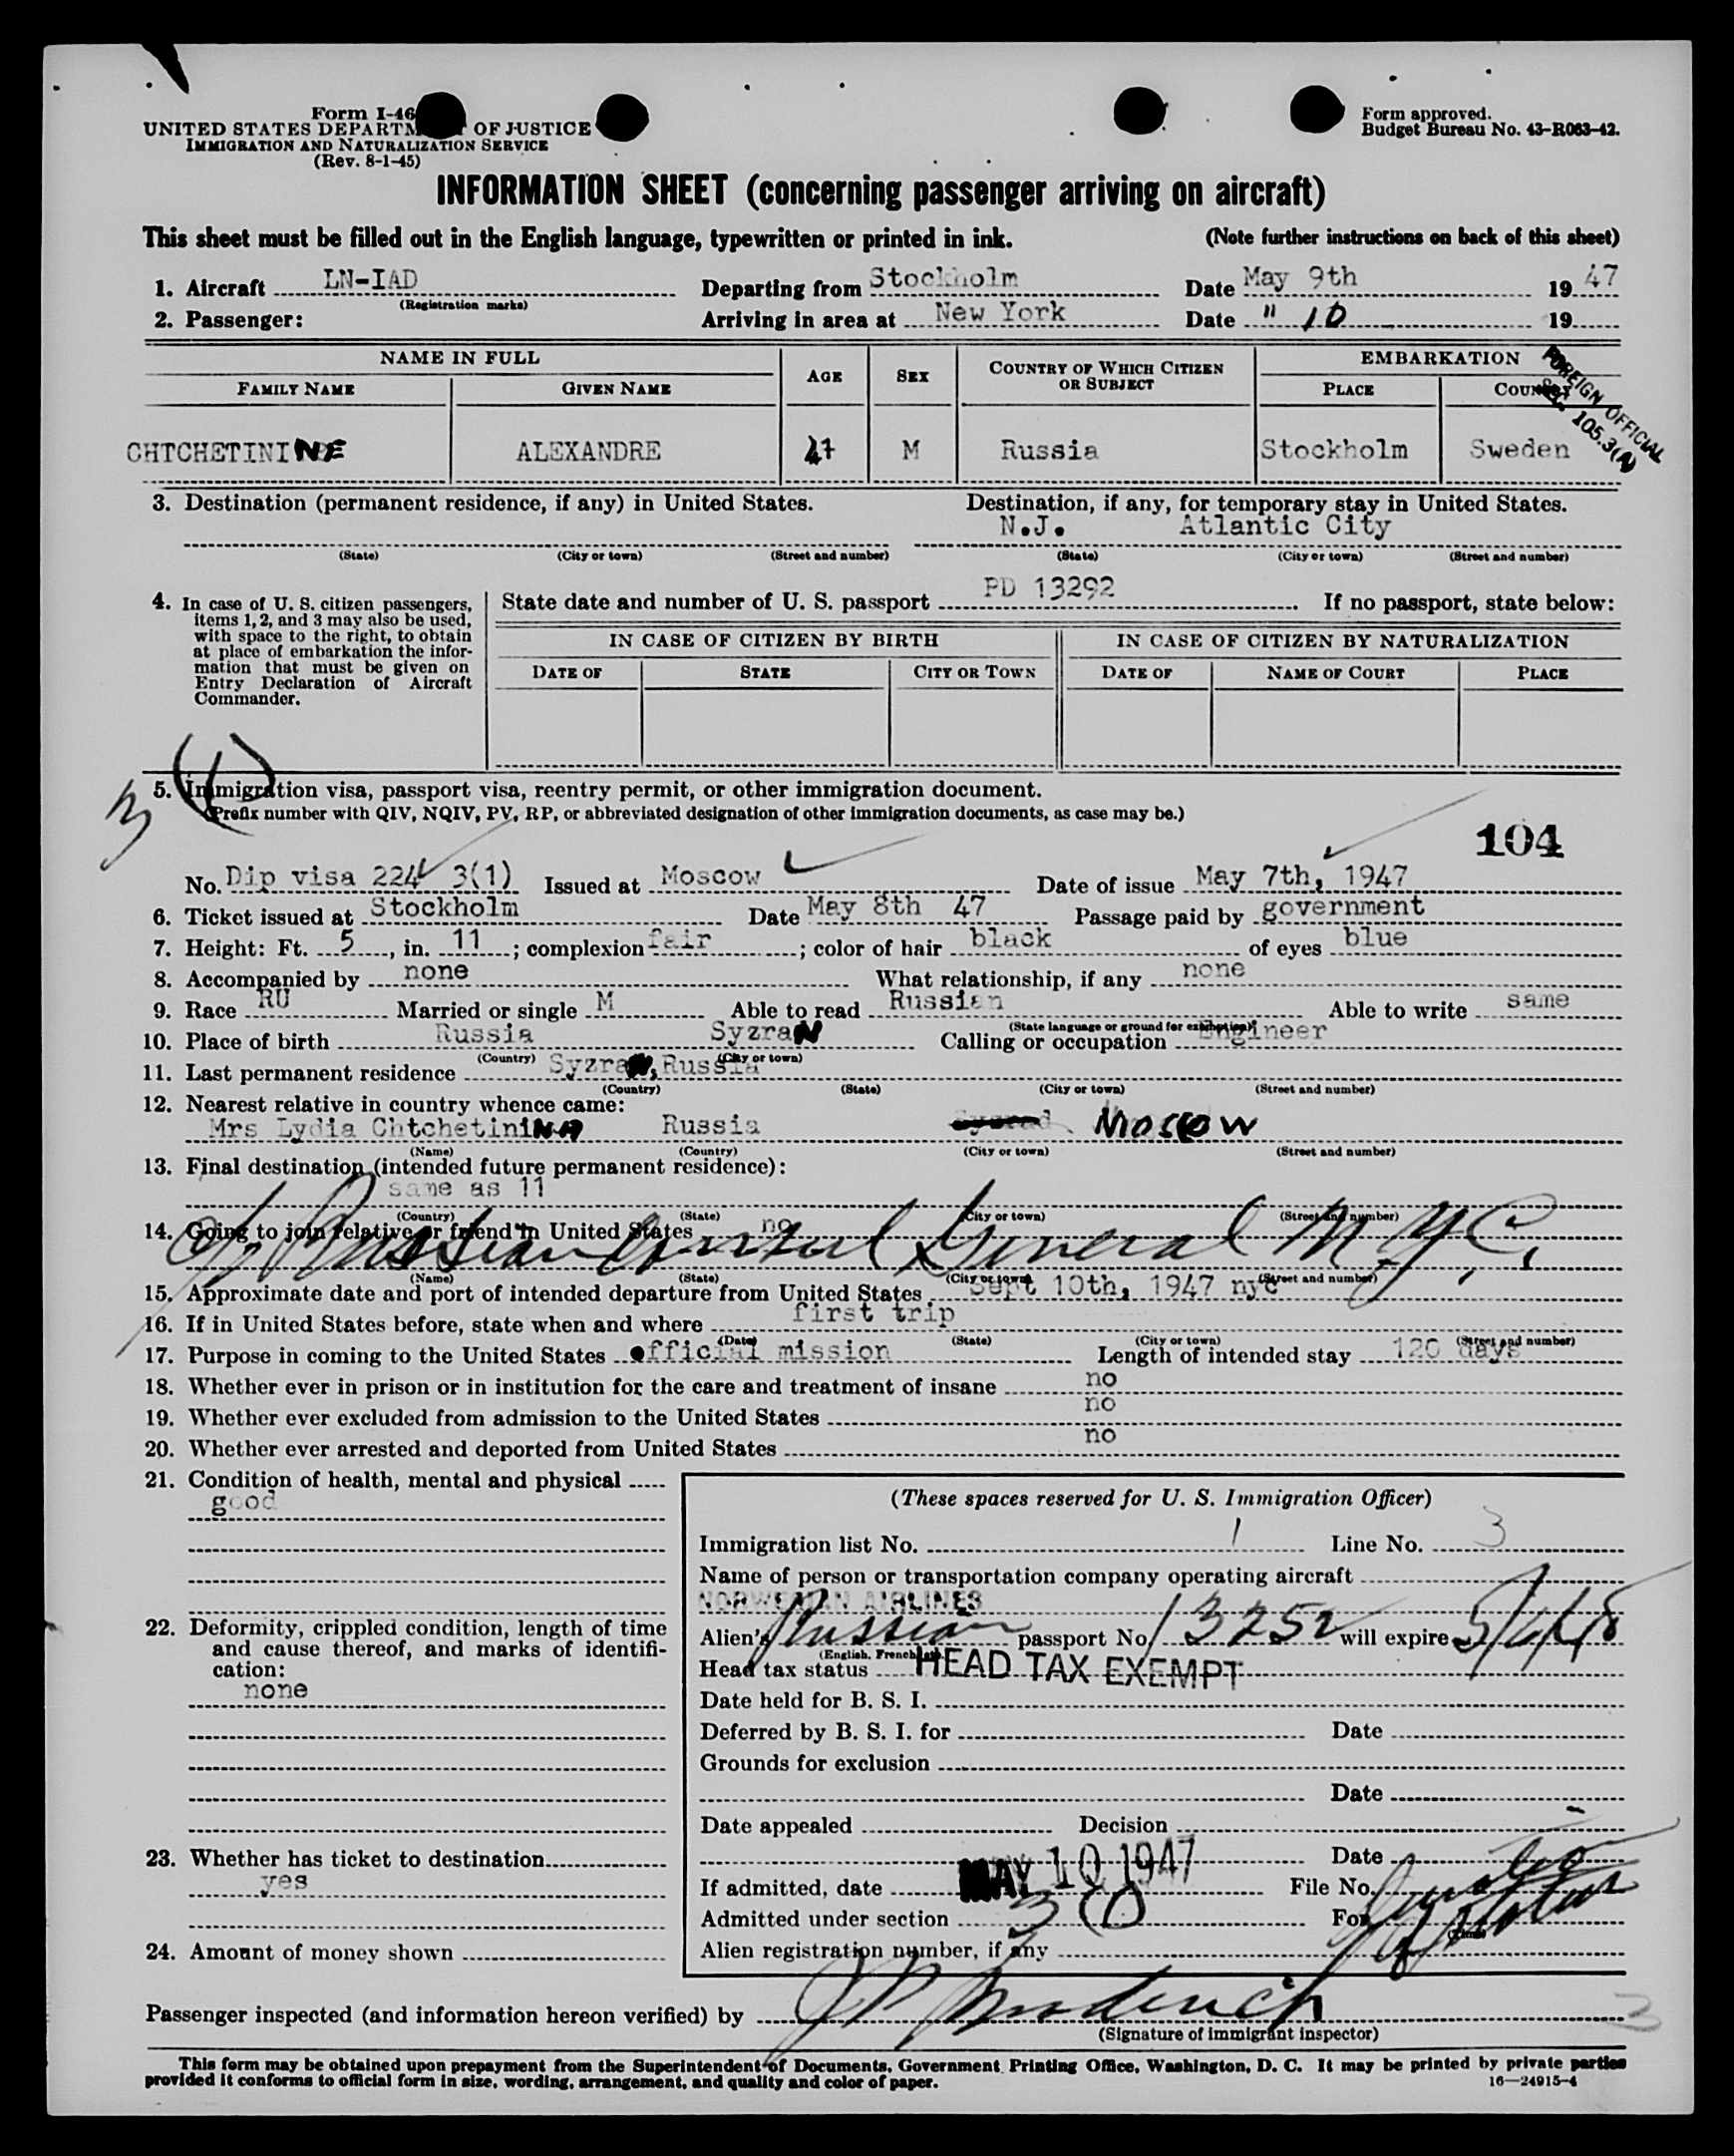 Form I-46
UNITED STATES DEPARTM OF JUSTICE
IMMIGRATION AND NATURALIZATION SERVICE
(Rev. 8-1-45)
Form approved.
Budget Bureau No. 43-R063-42.
INFORMATION SHEET (concerning passenger arriving on aircraft)
This sheet must be filled out in the English language, typewritten or printed in ink. (Note further instructions on back of this sheet)
1. Aircraft LN-IAD Departing from Stockholm Date May 9th 1947
(Registration marks)
2. Passenger: Arriving in area at New York Date " 10 19
NAME IN FULL AGE SEX COUNTRY OF WHICH CITIZEN OR SUBJECT EMBARKATION
FAMILY NAME GIVEN NAME PLACE COUNTRY
FOREIGN OFFICIAL
SEC. 105.3(A)
CHTCHETININE ALEXANDRE M Russia Stockholm Sweden
3. Destination (permanent residence, if any) in United States. Destination, if any, for temporary stay in United States.
N.J. Atlantic City
(State) (City or town) (Street and number) (State) (City or town) (Street and number)
4. In case of U. S. citizen passengers, items 1, 2, and 3 may also be used, with space to the right, to obtain at place of embarkation the information that must be given on Entry Declaration of Aircraft Commander.
State date and number of U. S. passport PD 13292 If no passport, state below:
IN CASE OF CITIZEN BY BIRTH IN CASE OF CITIZEN BY NATURALIZATION
DATE OF STATE CITY OR TOWN DATE OF NAME OF COURT PLACE
3 (1)
5. Immigration visa, passport visa, reentry permit, or other immigration document.
(Prefix number with QIV, NQIV, PV, RP, or abbreviated designation of other immigration documents, as case may be.)
104
No. Dip visa 224 3(1) Issued at Moscow Date of issue May 7th, 1947
6. Ticket issued at Stockholm Date May 8th 47 Passage paid by government
7. Height: Ft. 5, in. 11; complexion fair; color of hair black of eyes blue
8. Accompanied by none What relationship, if any none
9. Race RU Married or single M Able to read Russian Able to write same
(State language or ground for exemption)
10. Place of birth Russia Syzran Calling or occupation Engineer
(Country) (City or town)
11. Last permanent residence Syzran, Russia
(Country) (State) (City or town) (Street and number)
12. Nearest relative in country whence came:
Mrs Lydia Chtchetinina Russia Moscow
(Name) (Country) (City or town) (Street and number)
13. Final destination (intended future permanent residence):
same as 11
(Country) (State) (City or town) (Street and number)
14. Going to join relative or friend in United States no
To Russian Consul General N.Y.C.
(Name) (State) (City or town) (Street and number)
15. Approximate date and port of intended departure from United States Sept 10th, 1947 nyc
16. If in United States before, state when and where first trip
(Date) (State) (City or town) (Street and number)
17. Purpose in coming to the United States official mission Length of intended stay 120 days
18. Whether ever in prison or in institution for the care and treatment of insane no
19. Whether ever excluded from admission to the United States no
20. Whether ever arrested and deported from United States no
21. Condition of health, mental and physical
good
22. Deformity, crippled condition, length of time and cause thereof, and marks of identification:
none
23. Whether has ticket to destination
yes
24. Amount of money shown
(These spaces reserved for U. S. Immigration Officer)
Immigration list No. 1 Line No. 3
Name of person or transportation company operating aircraft
NORWEGIAN AIRLINES
Alien's Russian passport No. 13252 will expire 5/6/48
(English, French, etc.)
Head tax status HEAD TAX EXEMPT
Date held for B. S. I.
Deferred by B. S. I. for Date
Grounds for exclusion
Date
Date appealed Decision
Date
If admitted, date MAY 10 1947 File No.
Admitted under section 3 (1) For
Alien registration number, if any
Passenger inspected (and information hereon verified) by
(Signature of immigrant inspector)
3
This form may be obtained upon prepayment from the Superintendent of Documents, Government Printing Office, Washington, D. C. It may be printed by private parties
provided it conforms to official form in size, wording, arrangement, and quality and color of paper.
16—24915-4